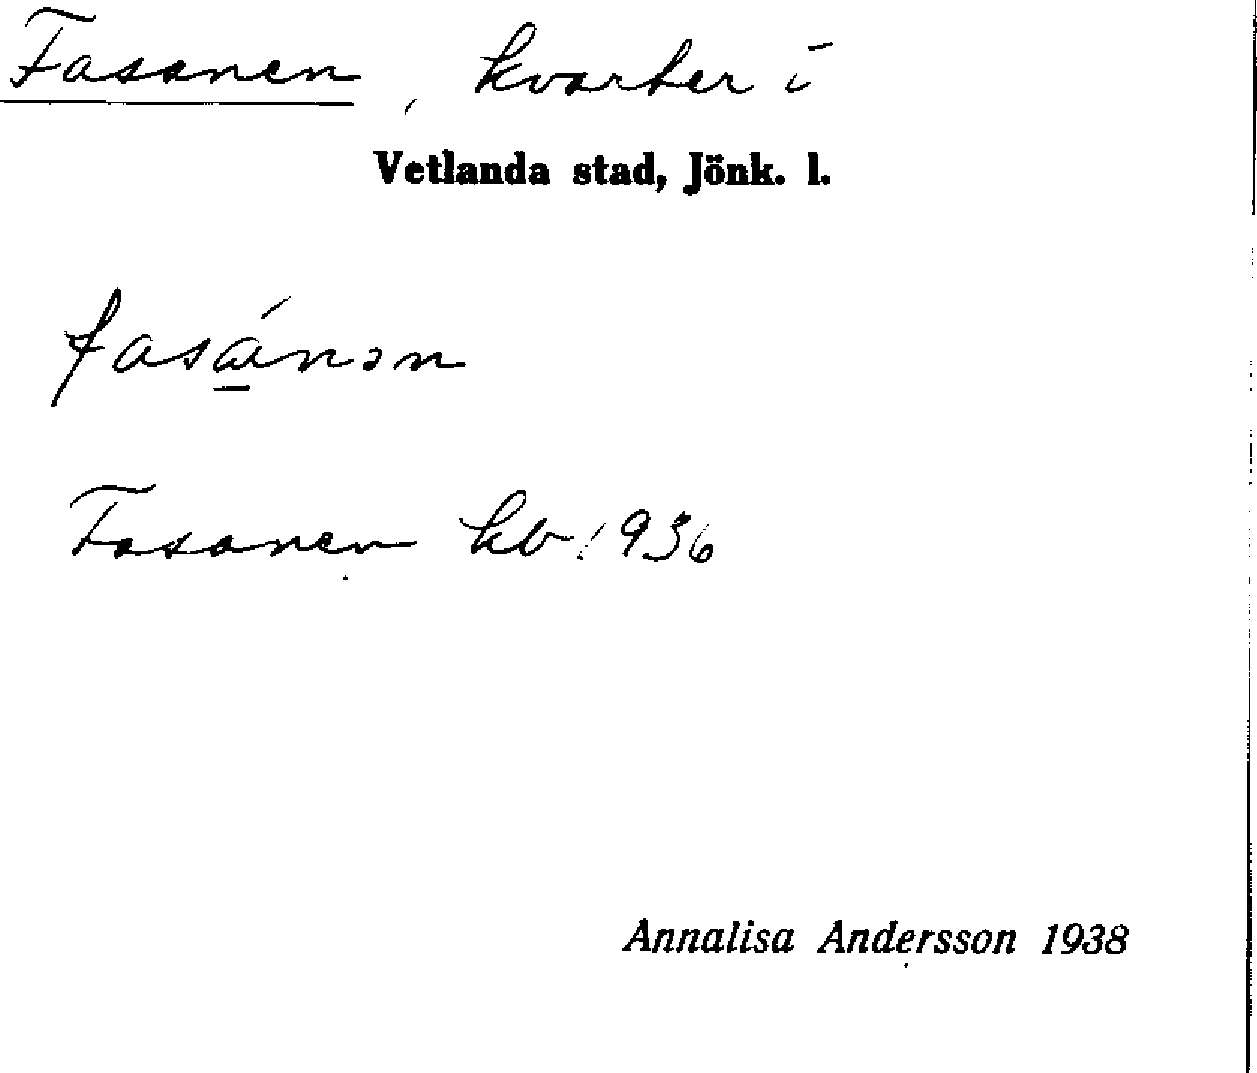 Fasanen, kvarter i
Vetlanda stad, Jönk. l.
fasánən
Fasanen kv 1936
Annalisa Andersson 1938